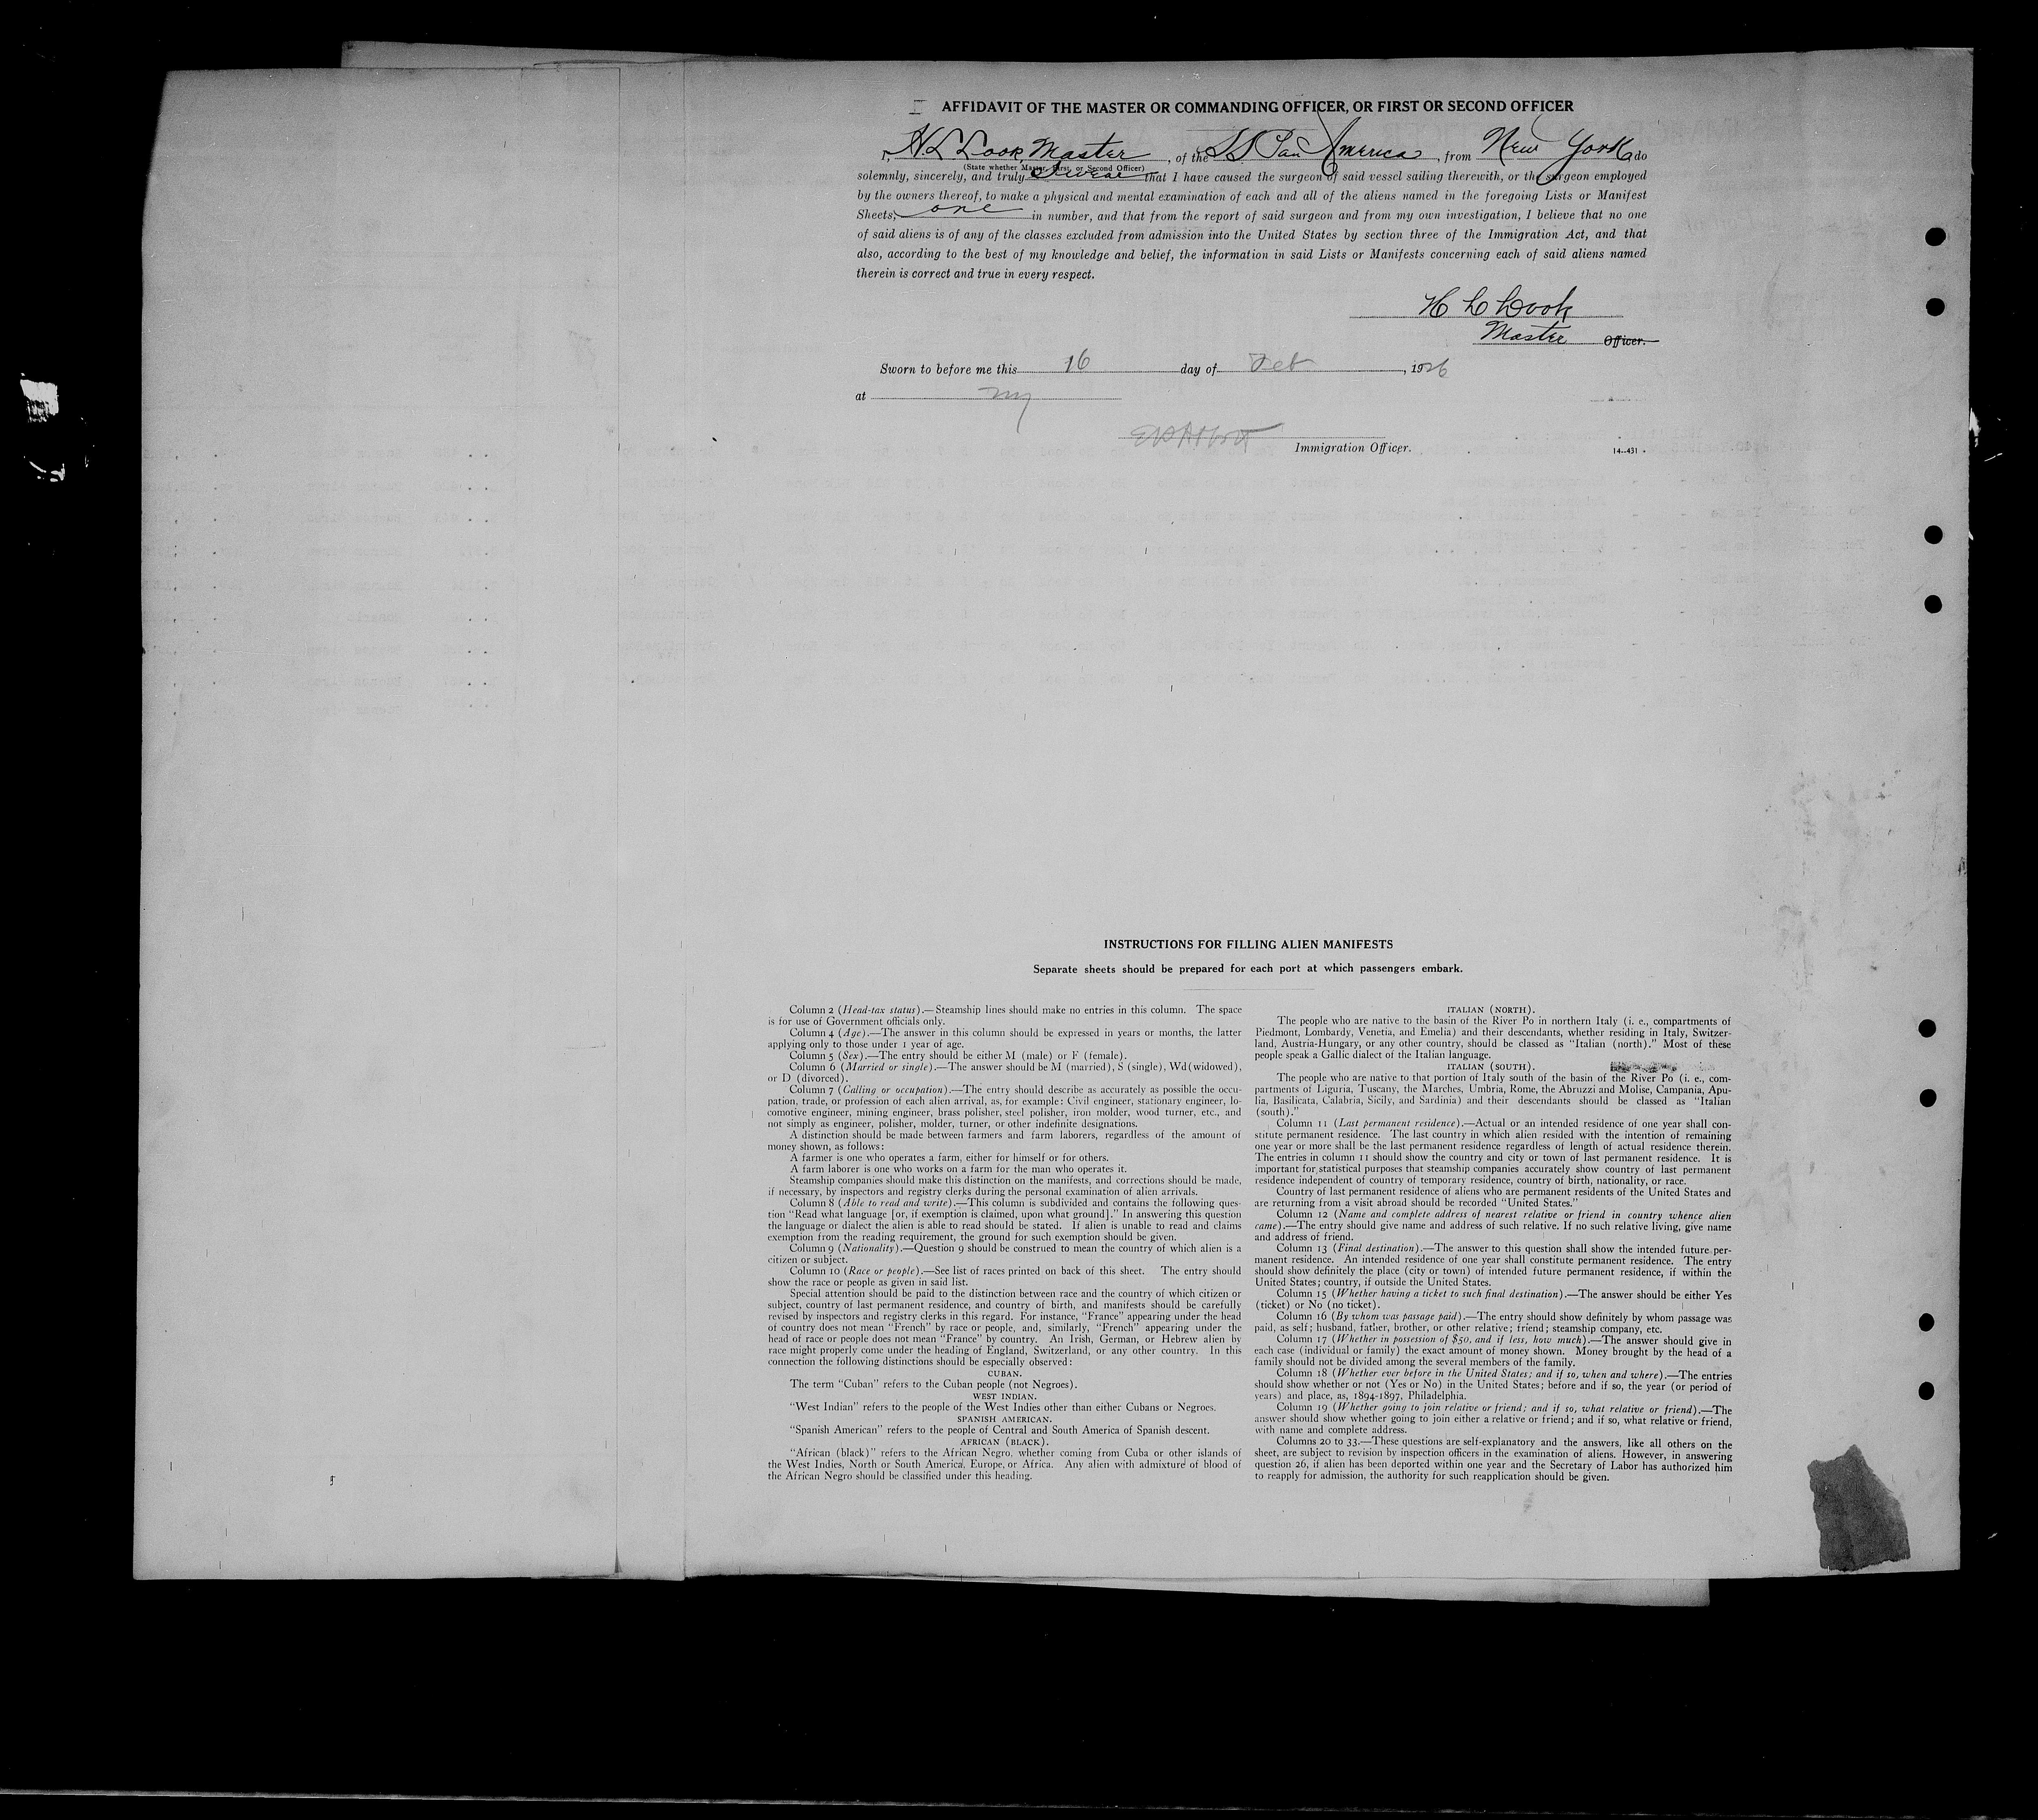 AFFIDAVIT OF THE MASTER OR COMMANDING OFFICER, OR FIRST OR SECOND OFFICER
I, H L Cook, Master, of the SS Pan America, from New York, do
(State whether Master, First, or Second Officer)
solemnly, sincerely, and truly swear that I have caused the surgeon of said vessel sailing therewith, or the surgeon employed
by the owners thereof, to make a physical and mental examination of each and all of the aliens named in the foregoing Lists or Manifest
Sheets, one in number, and that from the report of said surgeon and from my own investigation, I believe that no one
of said aliens is of any of the classes excluded from admission into the United States by section three of the Immigration Act, and that
also, according to the best of my knowledge and belief, the information in said Lists or Manifests concerning each of said aliens named
therein is correct and true in every respect.
H L Cook
Master Officer.
Sworn to before me this 16 day of , 1926
at ny
Immigration Officer.
14-431
INSTRUCTIONS FOR FILLING ALIEN MANIFESTS
Separate sheets should be prepared for each port at which passengers embark.
Column 2 (Head-tax status).—Steamship lines should make no entries in this column. The space
is for use of Government officials only.
Column 4 (Age).—The answer in this column should be expressed in years or months, the latter
applying only to those under 1 year of age.
Column 5 (Sex).—The entry should be either M (male) or F (female).
Column 6 (Married or single).—The answer should be M (married), S (single), Wd (widowed),
or D (divorced).
Column 7 (Calling or occupation).—The entry should describe as accurately as possible the occu-
pation, trade, or profession of each alien arrival, as, for example: Civil engineer, stationary engineer, lo-
comotive engineer, mining engineer, brass polisher, steel polisher, iron molder, wood turner, etc., and
not simply as engineer, polisher, molder, turner, or other indefinite designations.
A distinction should be made between farmers and farm laborers, regardless of the amount of
money shown, as follows:
A farmer is one who operates a farm, either for himself or for others.
A farm laborer is one who works on a farm for the man who operates it.
Steamship companies should make this distinction on the manifests, and corrections should be made,
if necessary, by inspectors and registry clerks during the personal examination of alien arrivals.
Column 8 (Able to read and write).—This column is subdivided and contains the following ques-
tion "Read what language [or, if exemption is claimed, upon what ground]." In answering this question
the language or dialect the alien is able to read should be stated. If alien is unable to read and claims
exemption from the reading requirement, the ground for such exemption should be given.
Column 9 (Nationality).—Question 9 should be construed to mean the country of which alien is a
citizen or subject.
Column 10 (Race or people).—See list of races printed on back of this sheet. The entry should
show the race or people as given in said list.
Special attention should be paid to the distinction between race and the country of which citizen or
subject, country of last permanent residence, and country of birth, and manifests should be carefully
revised by inspectors and registry clerks in this regard. For instance, "France" appearing under the head
of country does not mean "French" by race or people, and, similarly, "French" appearing under the
head of race or people does not mean "France" by country. An Irish, German, or Hebrew alien by
race might properly come under the heading of England, Switzerland, or any other country. In this
connection the following distinctions should be especially observed:
CUBAN.
The term "Cuban" refers to the Cuban people (not Negroes).
WEST INDIAN.
"West Indian" refers to the people of the West Indies other than either Cubans or Negroes.
SPANISH AMERICAN.
"Spanish American" refers to the people of Central and South America of Spanish descent.
AFRICAN (BLACK).
"African (black)" refers to the African Negro, whether coming from Cuba or other islands of
the West Indies, North or South America, Europe, or Africa. Any alien with admixture of blood of
the African Negro should be classified under this heading.
ITALIAN (NORTH).
The people who are native to the basin of the River Po in northern Italy (i. e., compartments of
Piedmont, Lombardy, Venetia, and Emelia) and their descendants, whether residing in Italy, Switzer-
land, Austria-Hungary, or any other country, should be classed as "Italian (north)." Most of these
people speak a Gallic dialect of the Italian language.
ITALIAN (SOUTH).
The people who are native to that portion of Italy south of the basin of the River Po (i. e., com-
partments of Liguria, Tuscany, the Marches, Umbria, Rome, the Abruzzi and Molise, Campania, Apu-
lia, Basilicata, Calabria, Sicily, and Sardinia) and their descendants should be classed as "Italian
(south)."
Column 11 (Last permanent residence).—Actual or an intended residence of one year shall con-
stitute permanent residence. The last country in which alien resided with the intention of remaining
one year or more shall be the last permanent residence regardless of length of actual residence therein.
The entries in column 11 should show the country and city or town of last permanent residence. It is
important for statistical purposes that steamship companies accurately show country of last permanent
residence independent of country of temporary residence, country of birth, nationality, or race.
Country of last permanent residence of aliens who are permanent residents of the United States and
are returning from a visit abroad should be recorded "United States."
Column 12 (Name and complete address of nearest relative or friend in country whence alien
came).—The entry should give name and address of such relative. If no such relative living, give name
and address of friend.
Column 13 (Final destination).—The answer to this question shall show the intended future per-
manent residence. An intended residence of one year shall constitute permanent residence. The entry
should show definitely the place (city or town) of intended future permanent residence, if within the
United States; country, if outside the United States.
Column 15 (Whether having a ticket to such final destination).—The answer should be either Yes
(ticket) or No (no ticket).
Column 16 (By whom was passage paid).—The entry should show definitely by whom passage was
paid, as self; husband, father, brother, or other relative; friend; steamship company, etc.
Column 17 (Whether in possession of $50, and if less, how much).—The answer should give in
each case (individual or family) the exact amount of money shown. Money brought by the head of a
family should not be divided among the several members of the family.
Column 18 (Whether ever before in the United States; and if so, when and where).—The entries
should show whether or not (Yes or No) in the United States; before and if so, the year (or period of
years) and place, as, 1894-1897, Philadelphia.
Column 19 (Whether going to join relative or friend; and if so, what relative or friend).—The
answer should show whether going to join either a relative or friend; and if so, what relative or friend,
with name and complete address.
Columns 20 to 33.—These questions are self-explanatory and the answers, like all others on the
sheet, are subject to revision by inspection officers in the examination of aliens. However, in answering
question 26, if alien has been deported within one year and the Secretary of Labor has authorized him
to reapply for admission, the authority for such reapplication should be given.